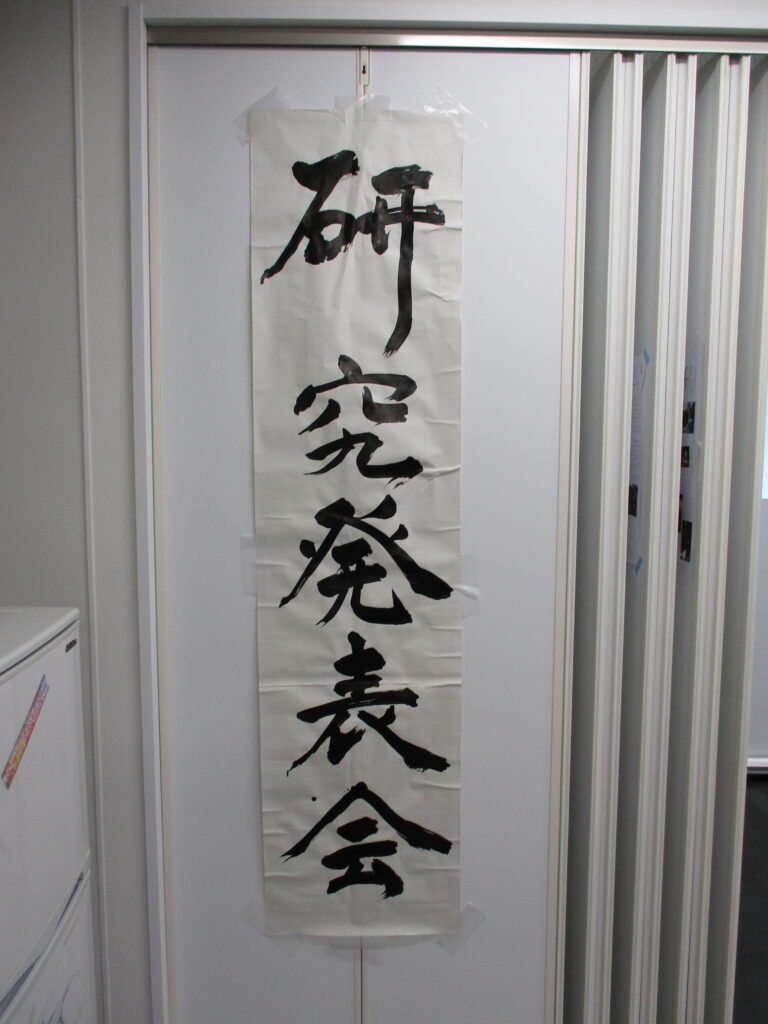 研究発表会